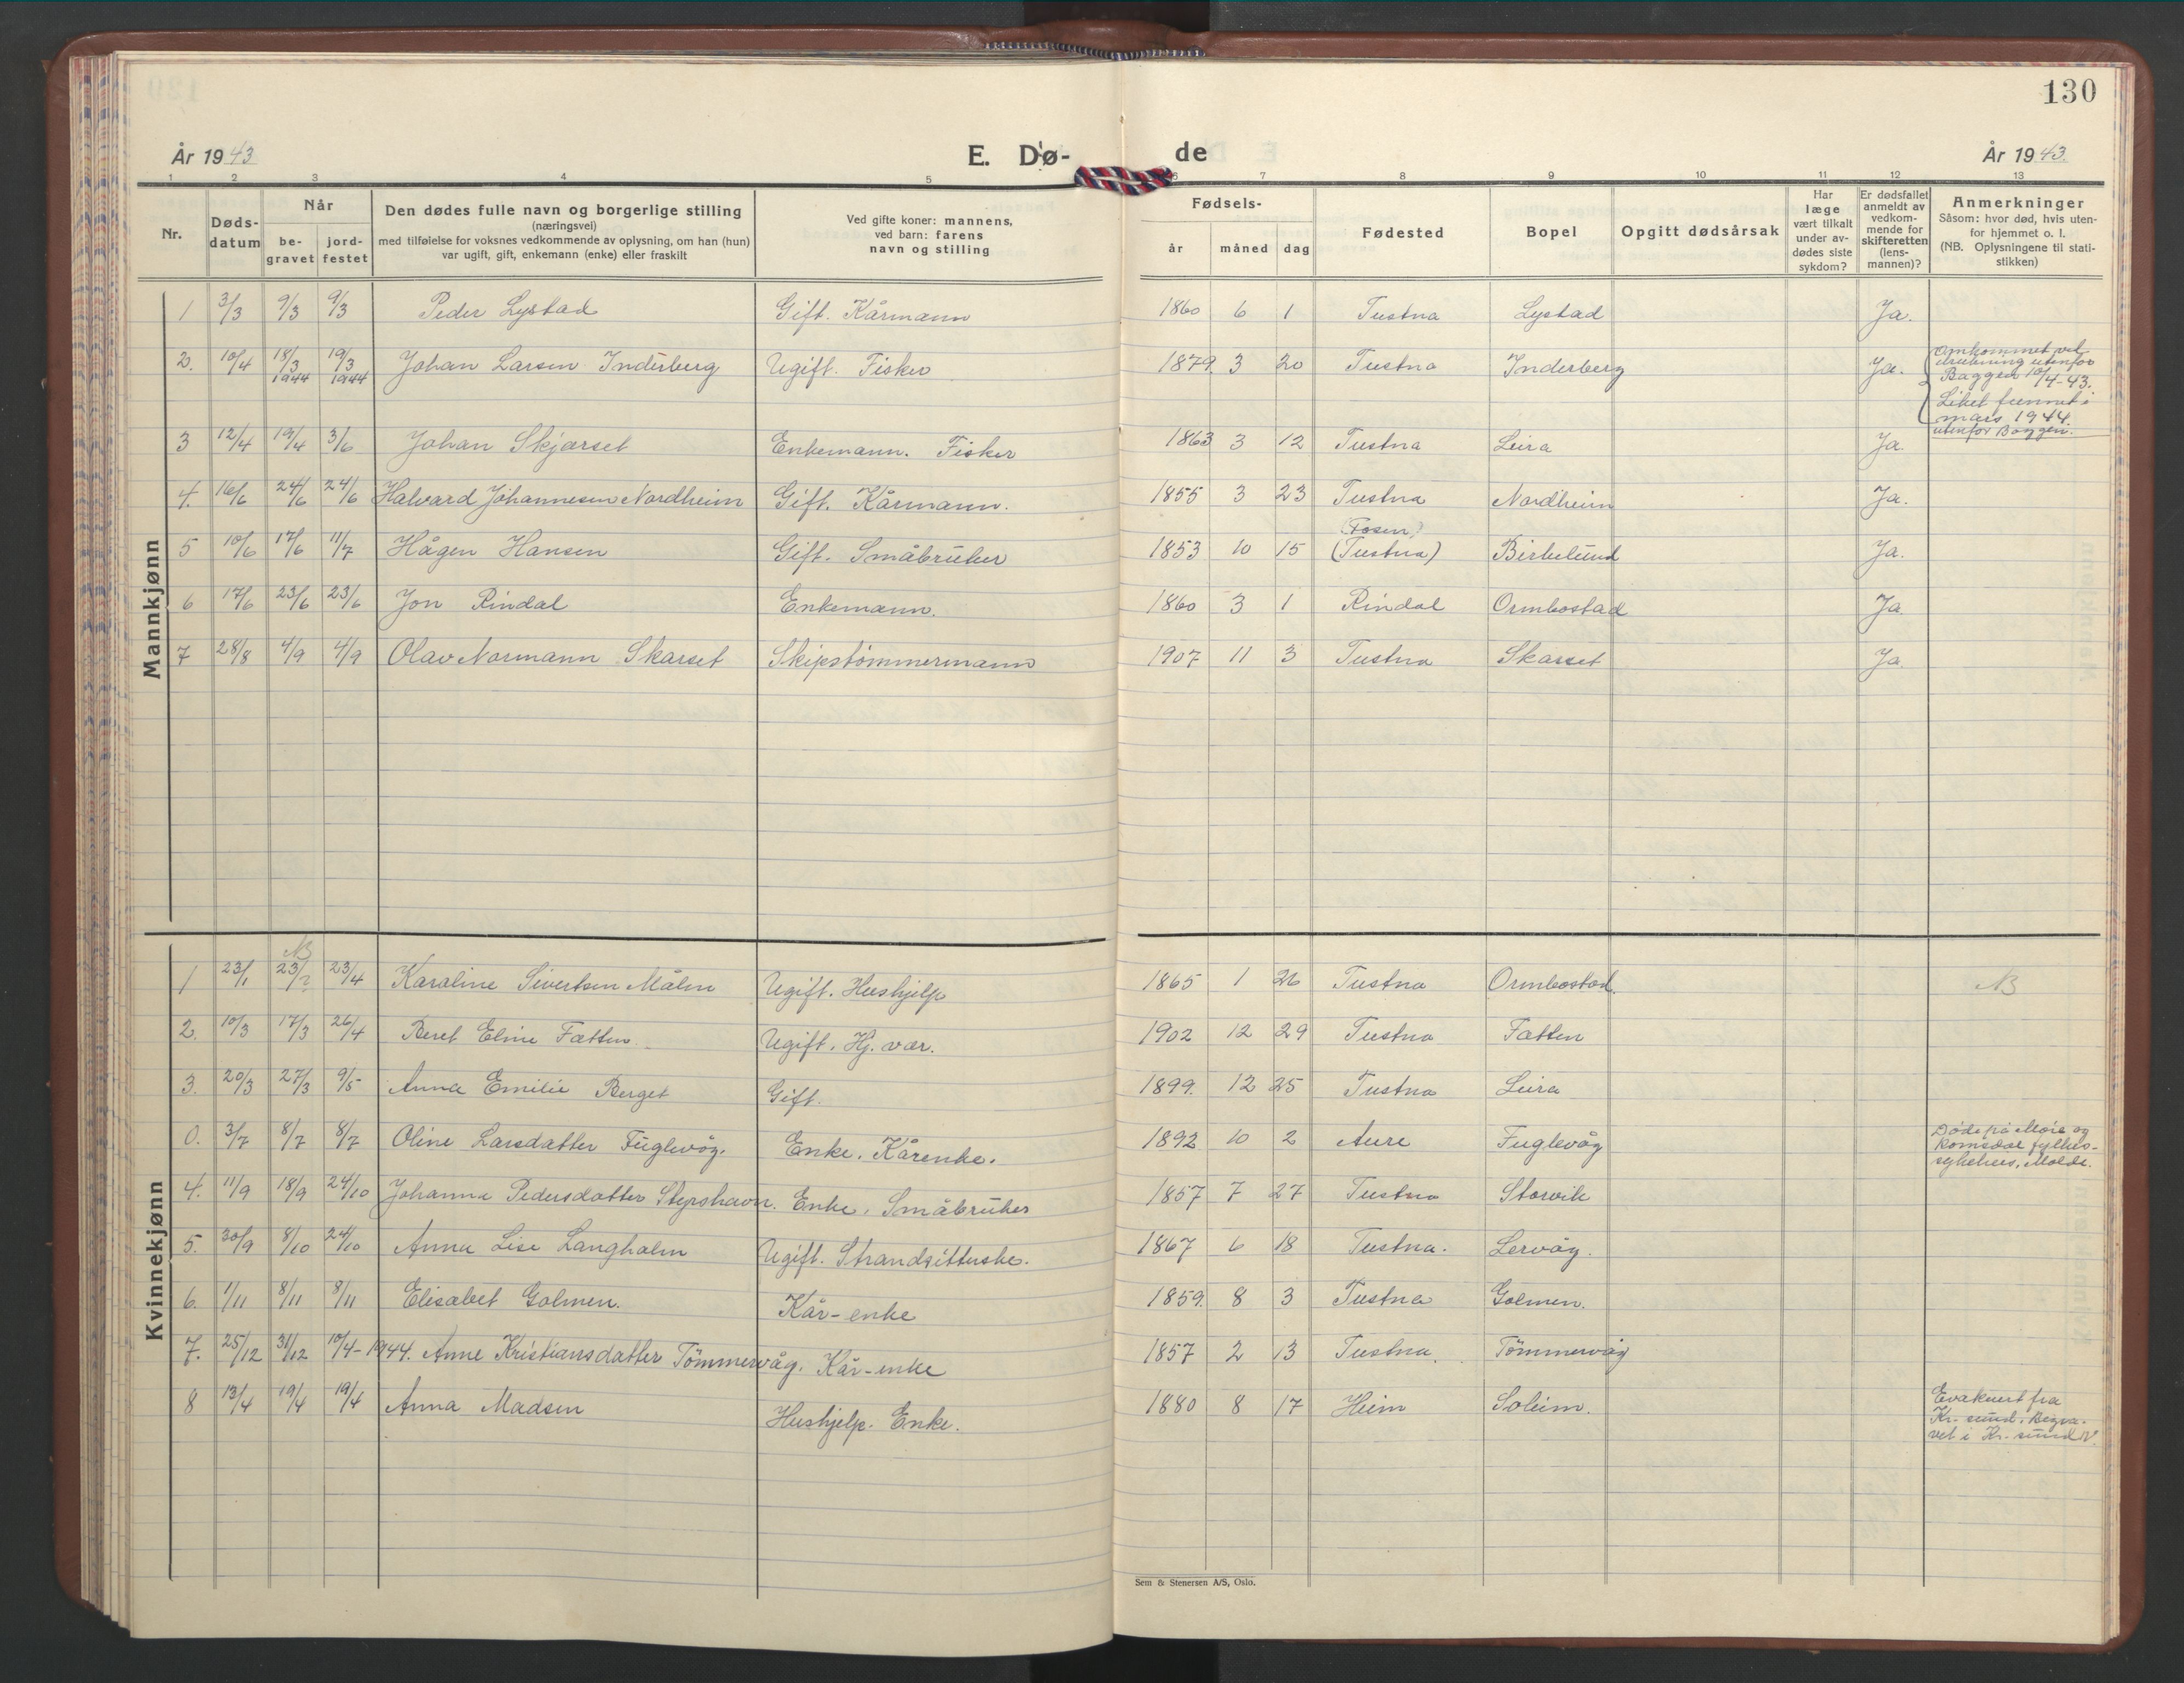 130
År 1943
E. Dø-
de
År 1943.
1 2 3 4 5 6 7 8 9 10 11 12 13
Nr.
Døds-
datum
Når
be-
gravet
jord-
festet
Den dødes fulle navn og borgerlige stilling
(næringsvei)
med tilføielse for voksnes vedkommende av oplysning, om han (hun)
var ugift, gift, enkemann (enke) eller fraskilt
Ved gifte koner: mannens,
ved barn: farens
navn og stilling
Fødsels-
år måned dag
Fødested
Bopel
Opgitt dødsårsak
Har
læge
vært tilkalt
under av-
dødes siste
sykdom?
Er dødsfallet
anmeldt av
vedkom-
mende for
skifteretten
(lens-
mannen)?
Anmerkninger
Såsom: hvor død, hvis uten-
for hjemmet o. l.
(NB. Oplysningene til stati-
stikken)
Mannkjønn
1 3/3 9/3 9/3 Peder Lystad Gift. Kårmann 1860 6 1 Tustna Lystad Ja.
2. 10/4 18/3 1944 19/3 1944 Johan Larsen Inderberg Ugift. Fisker 1879. 3 20 Tustna Inderberg Ja.
Omkommet ved
drukning utenfor
Baggen 10/4-43.
Liket funnet i
mars 1944
utenfor Baggen.
3 12/4 19/4 3/6 Johan Skjærset Enkemann. Fisker 1863 3 12 Tustna Leira Ja.
4. 16/6 24/6 24/6 Halvard Johannesen Nordheim Gift. Kårmann. 1855 3 23 Tustna Nordheim Ja.
(Fosen)
5 10/6 17/6 11/7 Hågen Hansen Gift. Småbruker 1853 10 15 (Tustna) Birkelund Ja.
6 17/6 23/6 23/6 Jon Rindal Enkemann. 1860 3 1 Rindal Ormbostad Ja
7 28/8 4/9 4/9 Olav Normann Skarset Skipstömmermann 1907 11 3 Tustna Skarset Ja
Kvinnekjønn
NB
1 23/1 23/? 23/4 Karoline Sivertsen Målen Ugift. Hushjelp 1865 1 26 Tustna Ormbostad. NB
2. 10/3 17/3 26/4 Beret Eline Fætten. Ugift. Hj. vær. 1902 12 29 Tustna Fætten
3. 20/3 27/3 9/5 Anna Emilie Berget Gift. 1899. 12 25 Tustna Leira
0. 3/7 8/7 8/7 Oline Larsdatter Fuglevåg. Enke. Kårenke. 1892 10 2 Aure Fuglevåg
Döde på Möre og
Romsdal fylkes-
sykehus, Molde.
4. 11/9 18/9 24/10 Johanna Pedersdatter Stepshavn. Enke. Småbruker 1857 7 27 Tustna Storvik
5. 30/9 8/10 24/10 Anna Lise Langholm Ugift. Strandsitterske. 1867 6 18 Tustna. Lervåg.
6. 1/11 8/11 8/11 Elisabet Golmen. Kår-enke 1859. 8 3 Tustna Golmen.
7. 25/12 31/12 10/4-1944. Anne Kristiansdatter Tömmervåg. Kår-enke 1857 2 13 Tustna. Tömmervåg
8 13/4 19/4 19/4 Anna Madsen Hushjelp. Enke. 1880 8 17 Heim Soleim.
Evakuert fra
Kr. sund. Begra-
vet i Kr. sund N.
Sem & Stenersen A/S, Oslo.